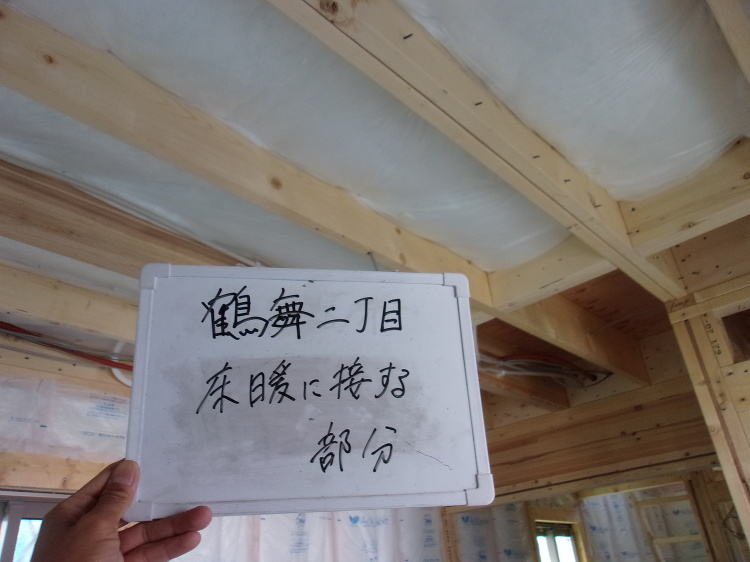 鶴舞二丁目
床暖に接する
部分